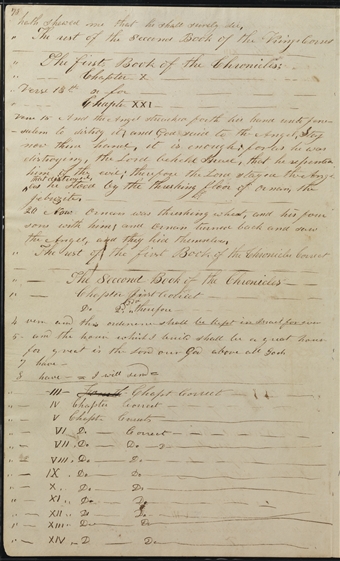 hath shewed me that he shall surely die,
" The rest of the Second Book of the Kings Correct
The first Book of the Chronicles
" Chapter X
" Verse 13th for
" Chapte XXI
Vers 15 And the Angel stretched forth his hand unto Jeru-
salem to distroy it, and God said to the Angel, Stay
now thine hand, it is enough; for as he was
distroying, the Lord beheld Israel, that he repented
him of the evil; therefore the Lord stayed the Angel
that distroyed,
as he stood by the thrashing floor of Ornan, the
Jebusite.
20 Now Ornan was thrashing wheat, and his four
sons with him; and Ornan turned back and saw
the Angel, and they hid themselves,
" The rest of the first Book of the Chronicles Correct
" The Second Book of the Chronicles
" Chapter first Correct
" Do 2d
4 and this ordinance shall be kept in Israel for ever
5 and the house which I build shall be a great house
for great is the Lord our God above all Gods
7 have
8 have I will send
" III Chapt Correct
" IV Chapter Correct
" V Chapt Correct
" VI Do Correct
" VII Do Do
" VIII Do Do
" IX Do Do
" X Do Do
" XI Do Do
" XII Do Do
" XIII Do Do
" XIV D Do